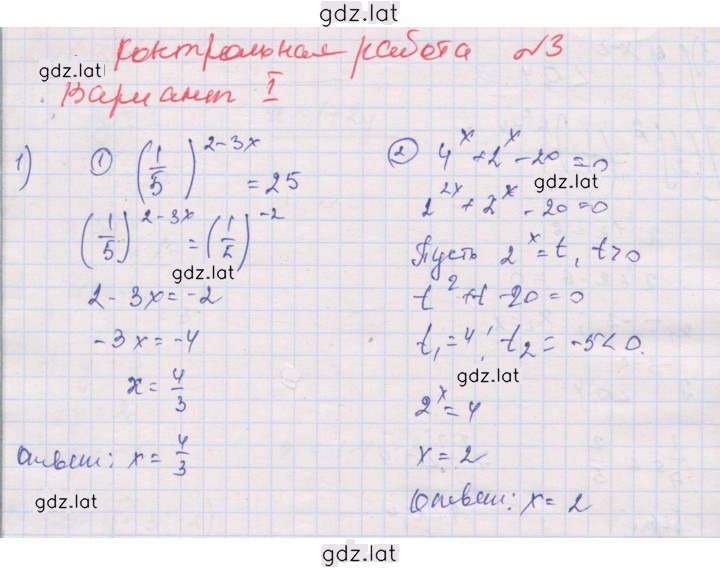 gdz.lat
Контрольная работа №3
gdz.lat
Вариант I
1) ① (1/5)^(2-3x) = 25
(1/5)^(2-3x) = (1/5)^(-2)
gdz.lat
2 - 3x = -2
-3x = -4
x = 4/3
Ответ: x = 4/3
gdz.lat
② 4^x + 2^x - 20 = 0
gdz.lat
2^(2x) + 2^x - 20 = 0
Пусть 2^x = t, t > 0
t^2 + t - 20 = 0
t₁ = 4; t₂ = -5 < 0.
gdz.lat
2^x = 4
x = 2
Ответ: x = 2
gdz.lat